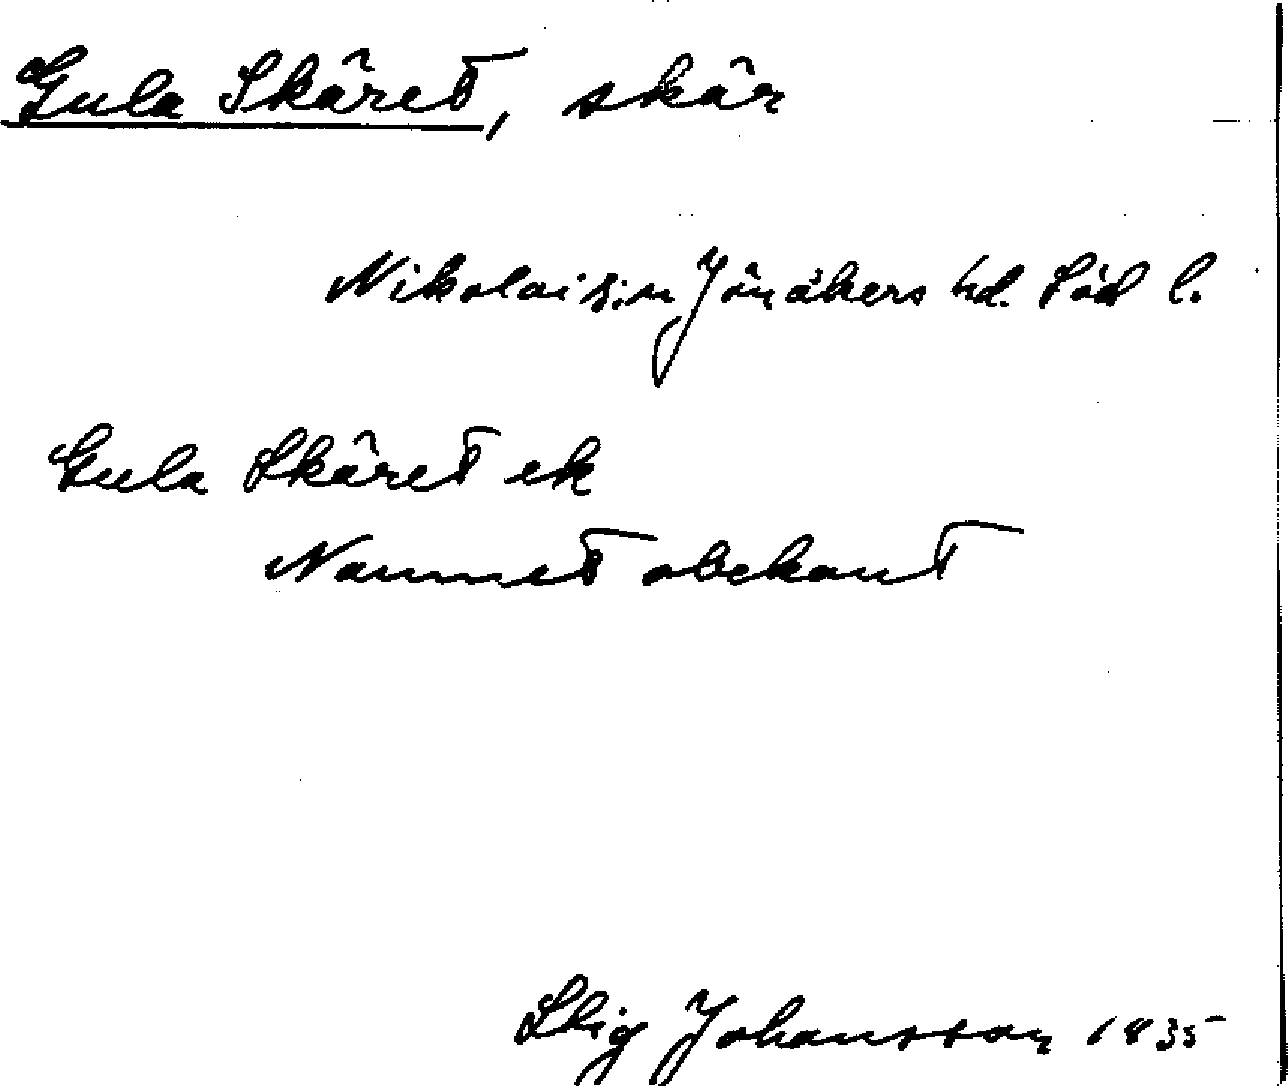 Gula Skäret, skär
Nikolai sn Jönåkers hd. Söd l.
Gula Skäret ek
Namnet obekant
Stig Johansson 1935